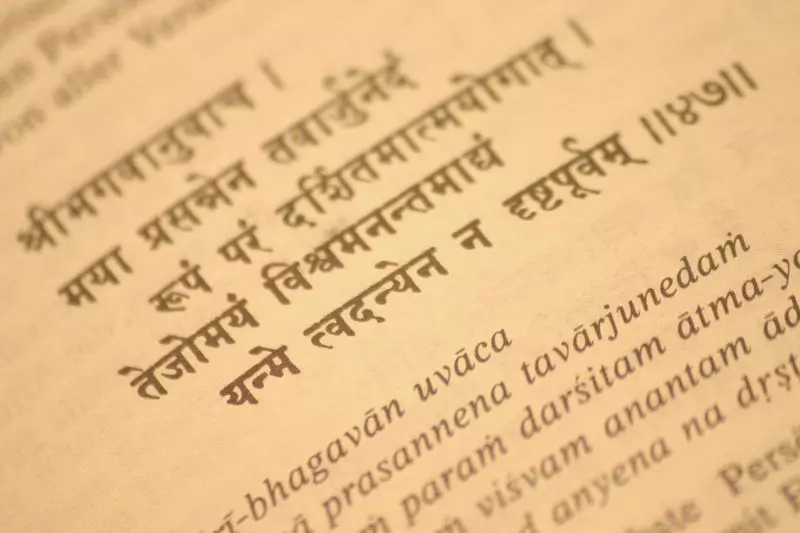 en Persön
von aller Verun
श्रीभगवानुवाच ।
मया प्रसन्नेन तवार्जुनेदं
रूपं परं दर्शितमात्मयोगात् ।
तेजोमयं विश्वमनन्तमाद्यं
यन्मे त्वदन्येन न दृष्टपूर्वम् ॥४७॥
rī-bhagavān uvāca
ā prasannena tavārjunedaṁ
ṁ paraṁ darśitam ātma-yo
ṁ viśvam anantam ād
d anyena na dṛṣṭ
Persö
mit